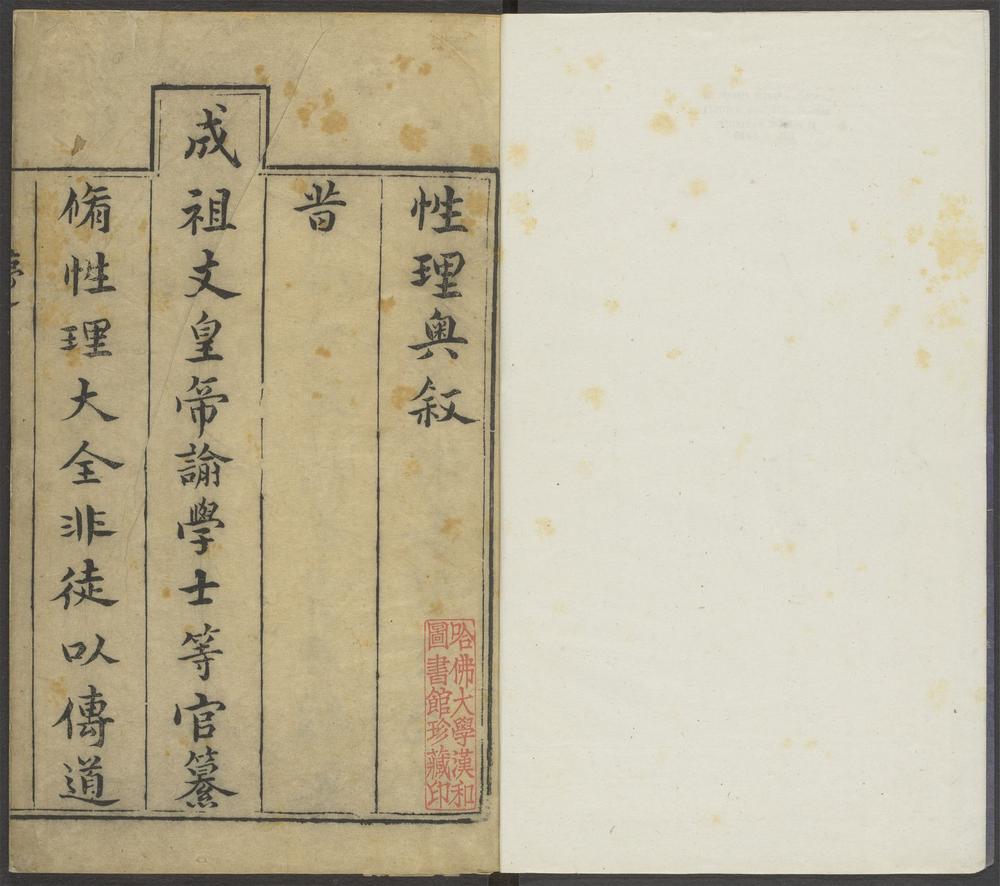 性理奧敘
昔
成祖文皇帝諭學士等官纂
脩性理大全非徒以傳道
哈佛大學漢和
圖書館珍藏印